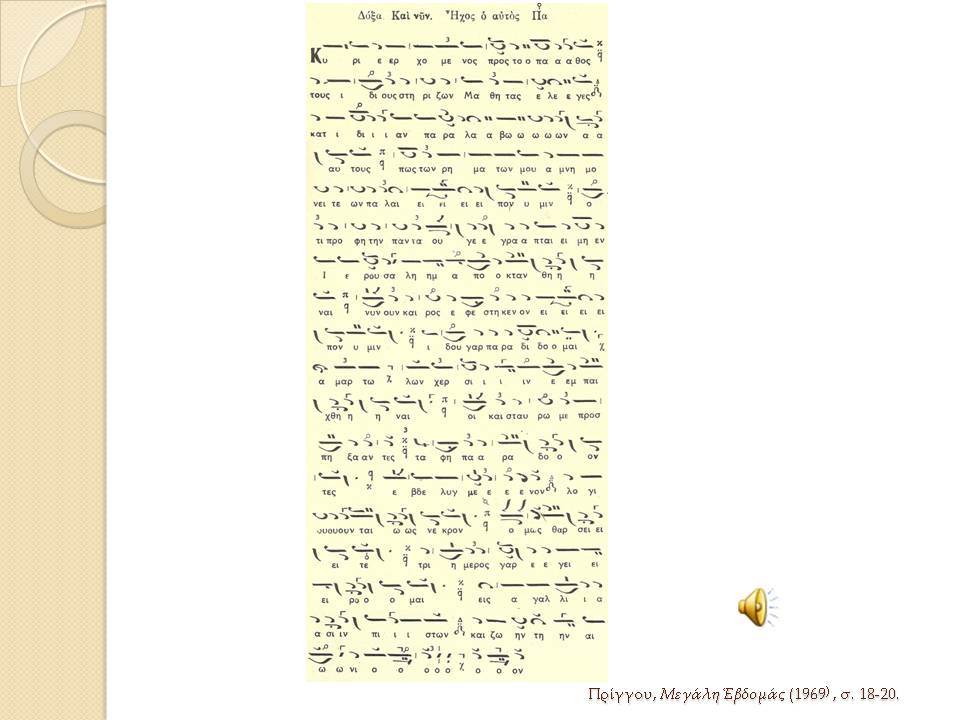 Δόξα. Καὶ νῦν. Ἦχος ὁ αὐτὸς Πα
Κυ ρι ε ερ χο με νος προς το ο πα α α θος
τους ι δι ους στη ρι ζων Μα θη τας ε λε ε γες
κατ ι δι ι ι αν πα ρα λα α βω ω ω ω ων α α
αυ τους πως των ρη μα των μου α μνη μο
νει τε ων πα λαι ει ει ει ει πον υ μιν ο
τι προ φη την παν τα ου γε ε γρα α πται ει μη εν
Ι ε ρου σα λη ημ α πο ο κταν θη η η
ναι νυν ουν και ρος ε φε στη κεν ον ει ει ει ει
πον υ μιν ι δου γαρ πα ρα δι δο ο μαι
α μαρ τω λων χερ σι ι ι ιν ε εμ παι
χθη η η ναι οι και σταυ ρω με προσ
πη ξα αν τες τα φη πα α ρα δο ο ον
τες ε βδε λυγ με ε ε ε νον λο γι
ουουουν ται ω ως νε κρον ο μως θαρ σει ει
ει τε τρι η μερος γαρ ε ε γει ει
ει ρο ο ο μαι εις α γαλ λι ι α
α σι ιν πι ι ι στων και ζω ην τη ην αι
ω ω νι ο ο ο ο ο ο ο ον
Πρίγγου, Μεγάλη Ἑβδομάς (1969) , σ. 18-20.